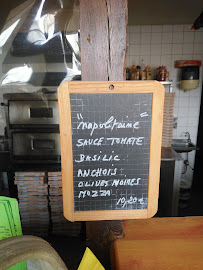 "Napolitaine"
SAUCE TOMATE
BASILIC
ANCHOIS
OLIVES NOIRES
MOZZA
10,20€